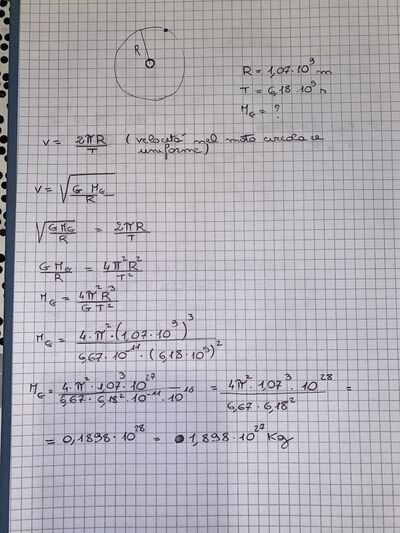 R
R = 1,07·10⁹ m
T = 6,18·10⁵ s
M_G = ?
v = 2πR/T (velocità nel moto circolare
uniforme)
v = √(G M_G/R)
√(G M_G/R) = 2πR/T
G M_G/R = 4π²R²/T²
M_G = 4π²R³/GT²
M_G = 4·π²·(1,07·10⁹)³/6,67·10⁻¹¹·(6,18·10⁵)²
M_G = 4·π²·1,07³·10²⁷/6,67·6,18²·10⁻¹¹·10¹⁰ = 4π²·1,07³·10²⁸/6,67·6,18² =
= 0,1898·10²⁸ = 1,898·10²⁷ Kg